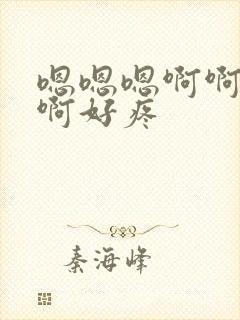 嗯嗯嗯啊啊
啊好疼
秦海峰